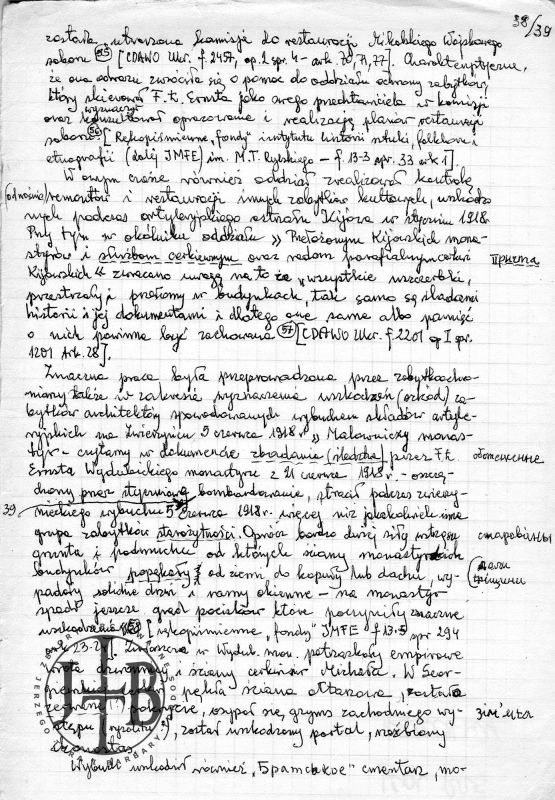 38/39
została utworzona komisja do restauracji Mikolskiego Wojskowego
soboru (55) [CDAWO Ukr. f. 2457, op. 2 spr. 4 - ark. 70, 71, 77]. Charakterystyczne,
że ona odrazu zwróciła się o pomoc do oddziału ochrony zabytków,
który skierował F. L. Ernsta jako swego przedstawiciela w komisji
wyznaczył
oraz konsultował opracowanie i realizację planów restauracji
soboru (56) [Rękopiśmienne „fondy" instytutu historii sztuki, folkloru i
etnografii (dalej JMFE) im. M. T. Rylskiego – f. 13-3 spr. 33 ark 1].
W owym czasie również oddział zrealizował kontrolę
(odnośnie) remontów i restauracji innych zabytków kultowych, uszkodzo-
nych podczas artyleryjskiego ostrzału Kijowa w styczniu 1918.
Przy tym w okólniku oddziału „Przełożonym Kijowskich mona-
styrów i służbom cerkiewnym oraz radom parafialnym cerkwi
причта
Kijowskich" zwracano uwagę na to że „wszystkie uszczerbki,
przestrzały i przełomy w budynkach, tak samo są śladami
historii i jej dokumentami i dlatego one same albo pamięć
o nich powinna być zachowana (57) [CDAWO Ukr. f. 2201 op I spr.
1201 Ark. 28].
Znaczna praca była przeprowadzona przez zabytkoochro-
niarzy także w zakresie wyznaczenia uszkodzeń (szkod) za-
bytków architektury spowodowanych wybuchem składów artyle-
ryjskich na Zwierzyńcu 5 czerwca 1918 r. „Malowniczy monas-
tyr – czytamy w dokumencie zbadania (śledztwa) przez F. L.
обстеження
Ernsta Wydubickiego monastyru z 21 czerwca 1918 r. – oszczę-
dzony przez styczniowe bombardowanie, stracił podczas zwierzy-
39
nieckiego wybuchu 5 czerwca 1918 r. więcej niż jakakolwiek inna
grupa zabytków starożytności. Oprócz bardzo dużej siły wstrząsu
старовини
gruntu i podmuchu od których ściany monastyrskich
budynków popękały od ziemi do kopuły lub dachu, wy-
дали тріщини
padały solidne drzwi i ramy okienne – na monastyr
spadł jeszcze grad pocisków które poczyniły znaczne
uszkodzenia (58) [rękopiśmienne „fondy" JMFE f 13-5 spr 294
ark 23-24]. Zwłaszcza w Wydub. mon. potrzaskały empirowe
wrota dzwonnicy i ściany cerkwi Michała. W Geor-
pękła ściana ołtarzowa, została
, osypał się gzyms zachodniego wy-
зім'ята
stępu , został uszkodzony portal, rozbiony
ikonostas.
Wybuch uszkodził również „Братське" cmentarz, mo-